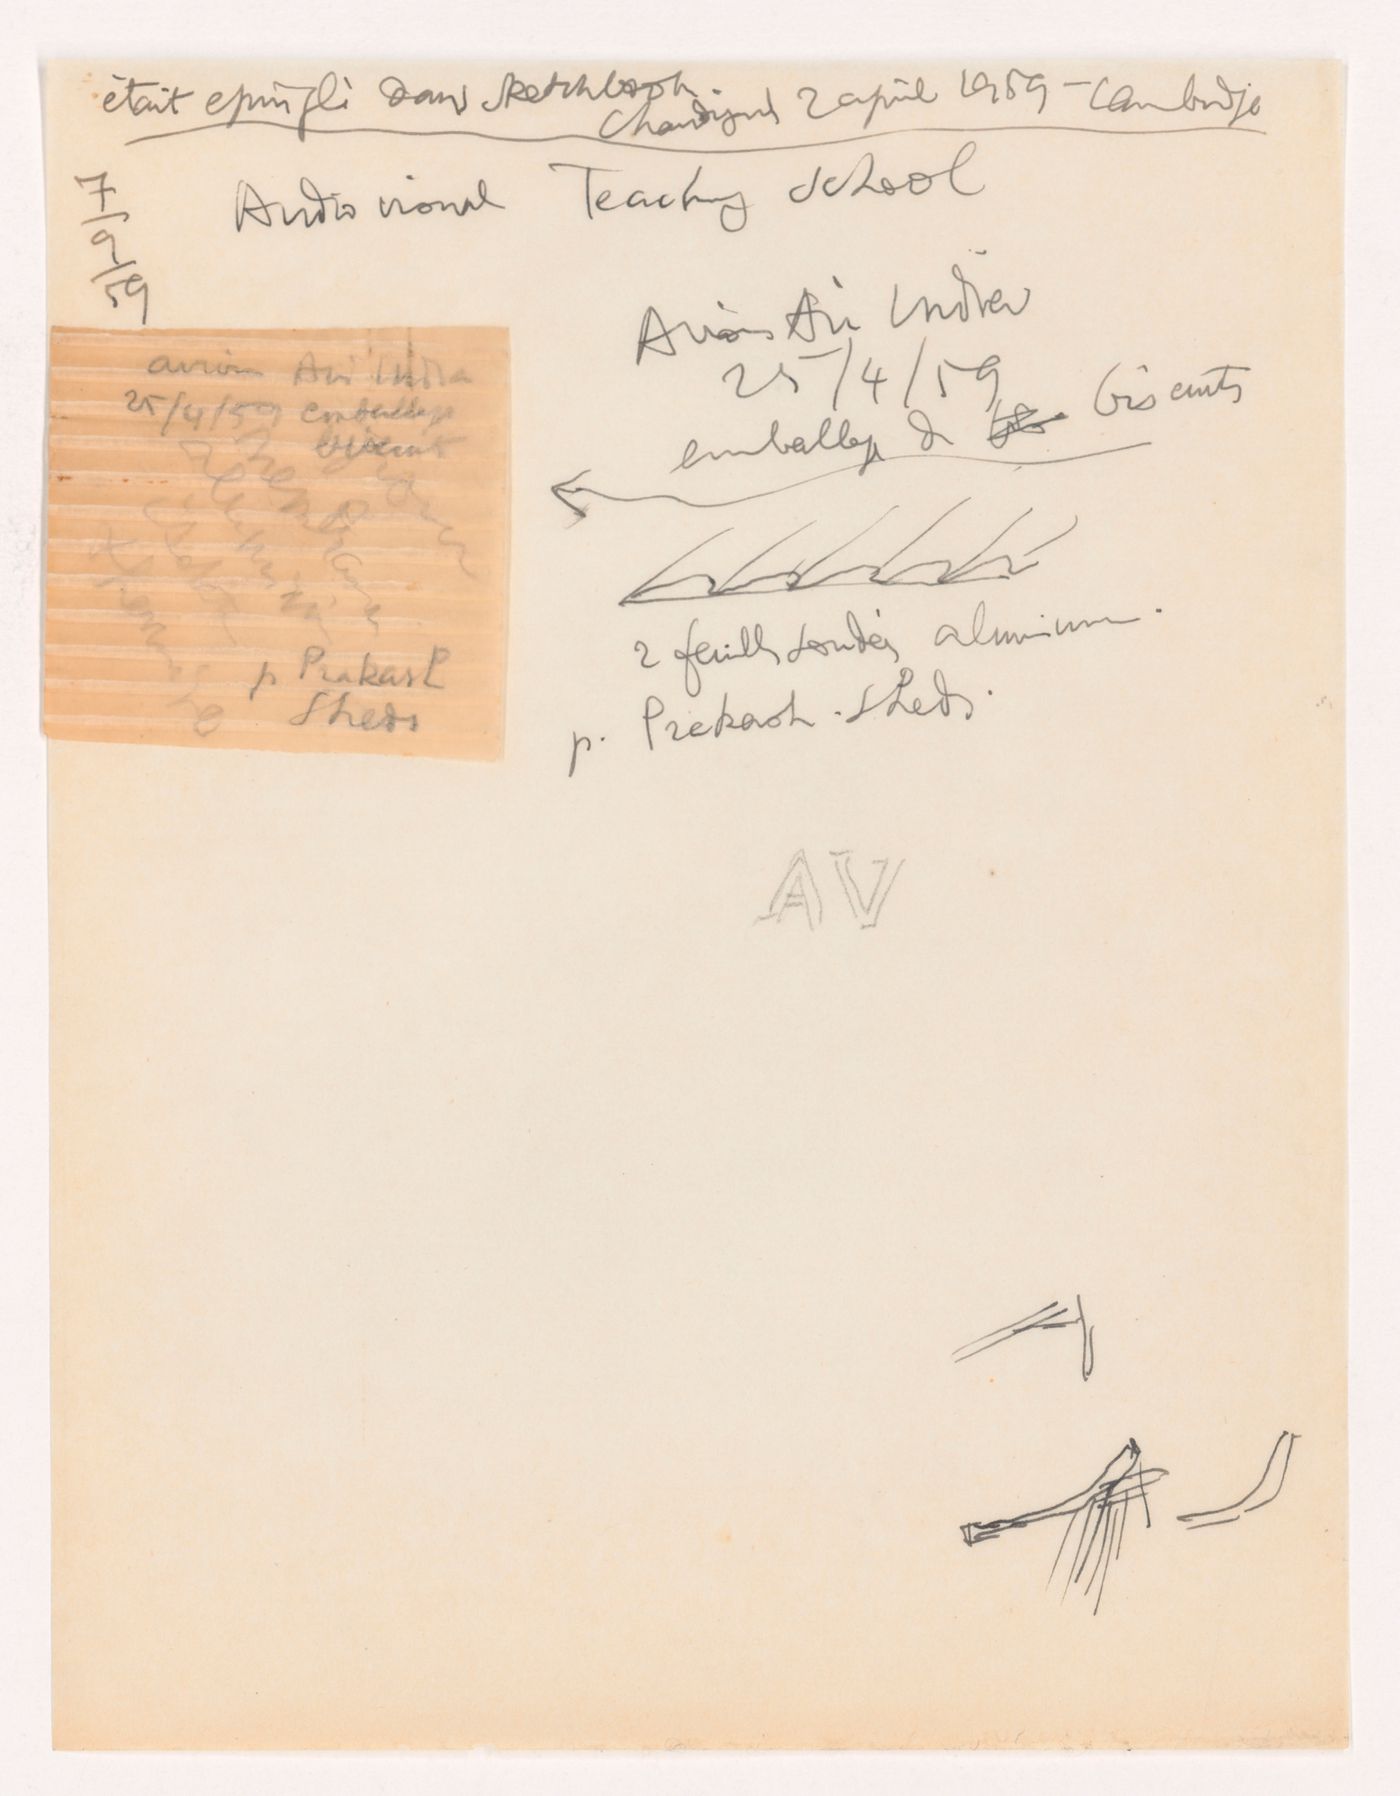 était epinglé dans sketchbook
Chandigarh 2 april 1959 - Cambridge
7/9/59
Audio visual Teaching School
Avion Air India
25/4/59
emballage de biscuits
avion Air India
25/4/59 emballage
biscuit
p Prakash
Sheds
2 feuilles soudées aluminium.
p. Prakash. Sheds.
AV